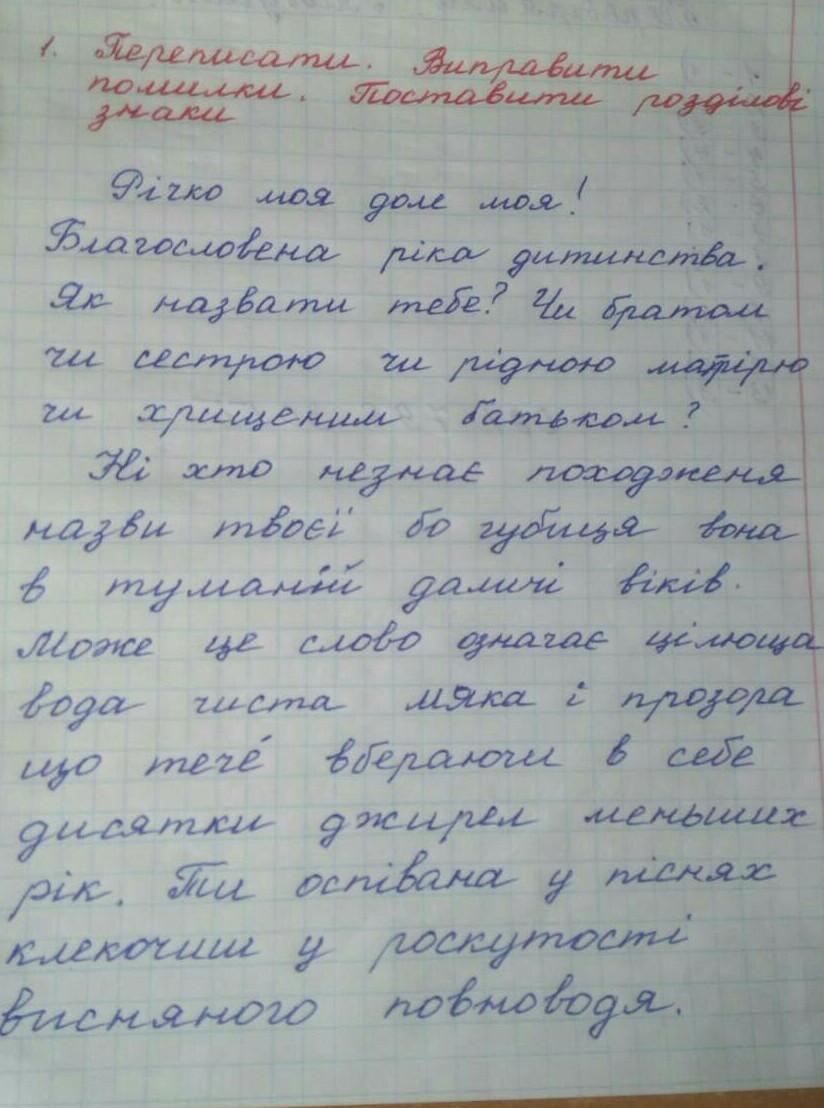 1. Переписати. Виправити
помилки. Поставити розділові
знаки
Річко моя доле моя!
Благословена ріка дитинства.
Як назвати тебе? Чи братом
чи сестрою чи рідною матірю
чи хрищеним батьком?
Ні хто незнає походженя
назви твоєї бо губиця вона
в туманій даличі віків.
Може це слово означає цілюща
вода чиста мяка і прозора
що тече́ вбераючи в себе
дисятки джирел меньших
рік. Ти оспівана у піснях
клекочиш у роскутості
висняного повноводя.